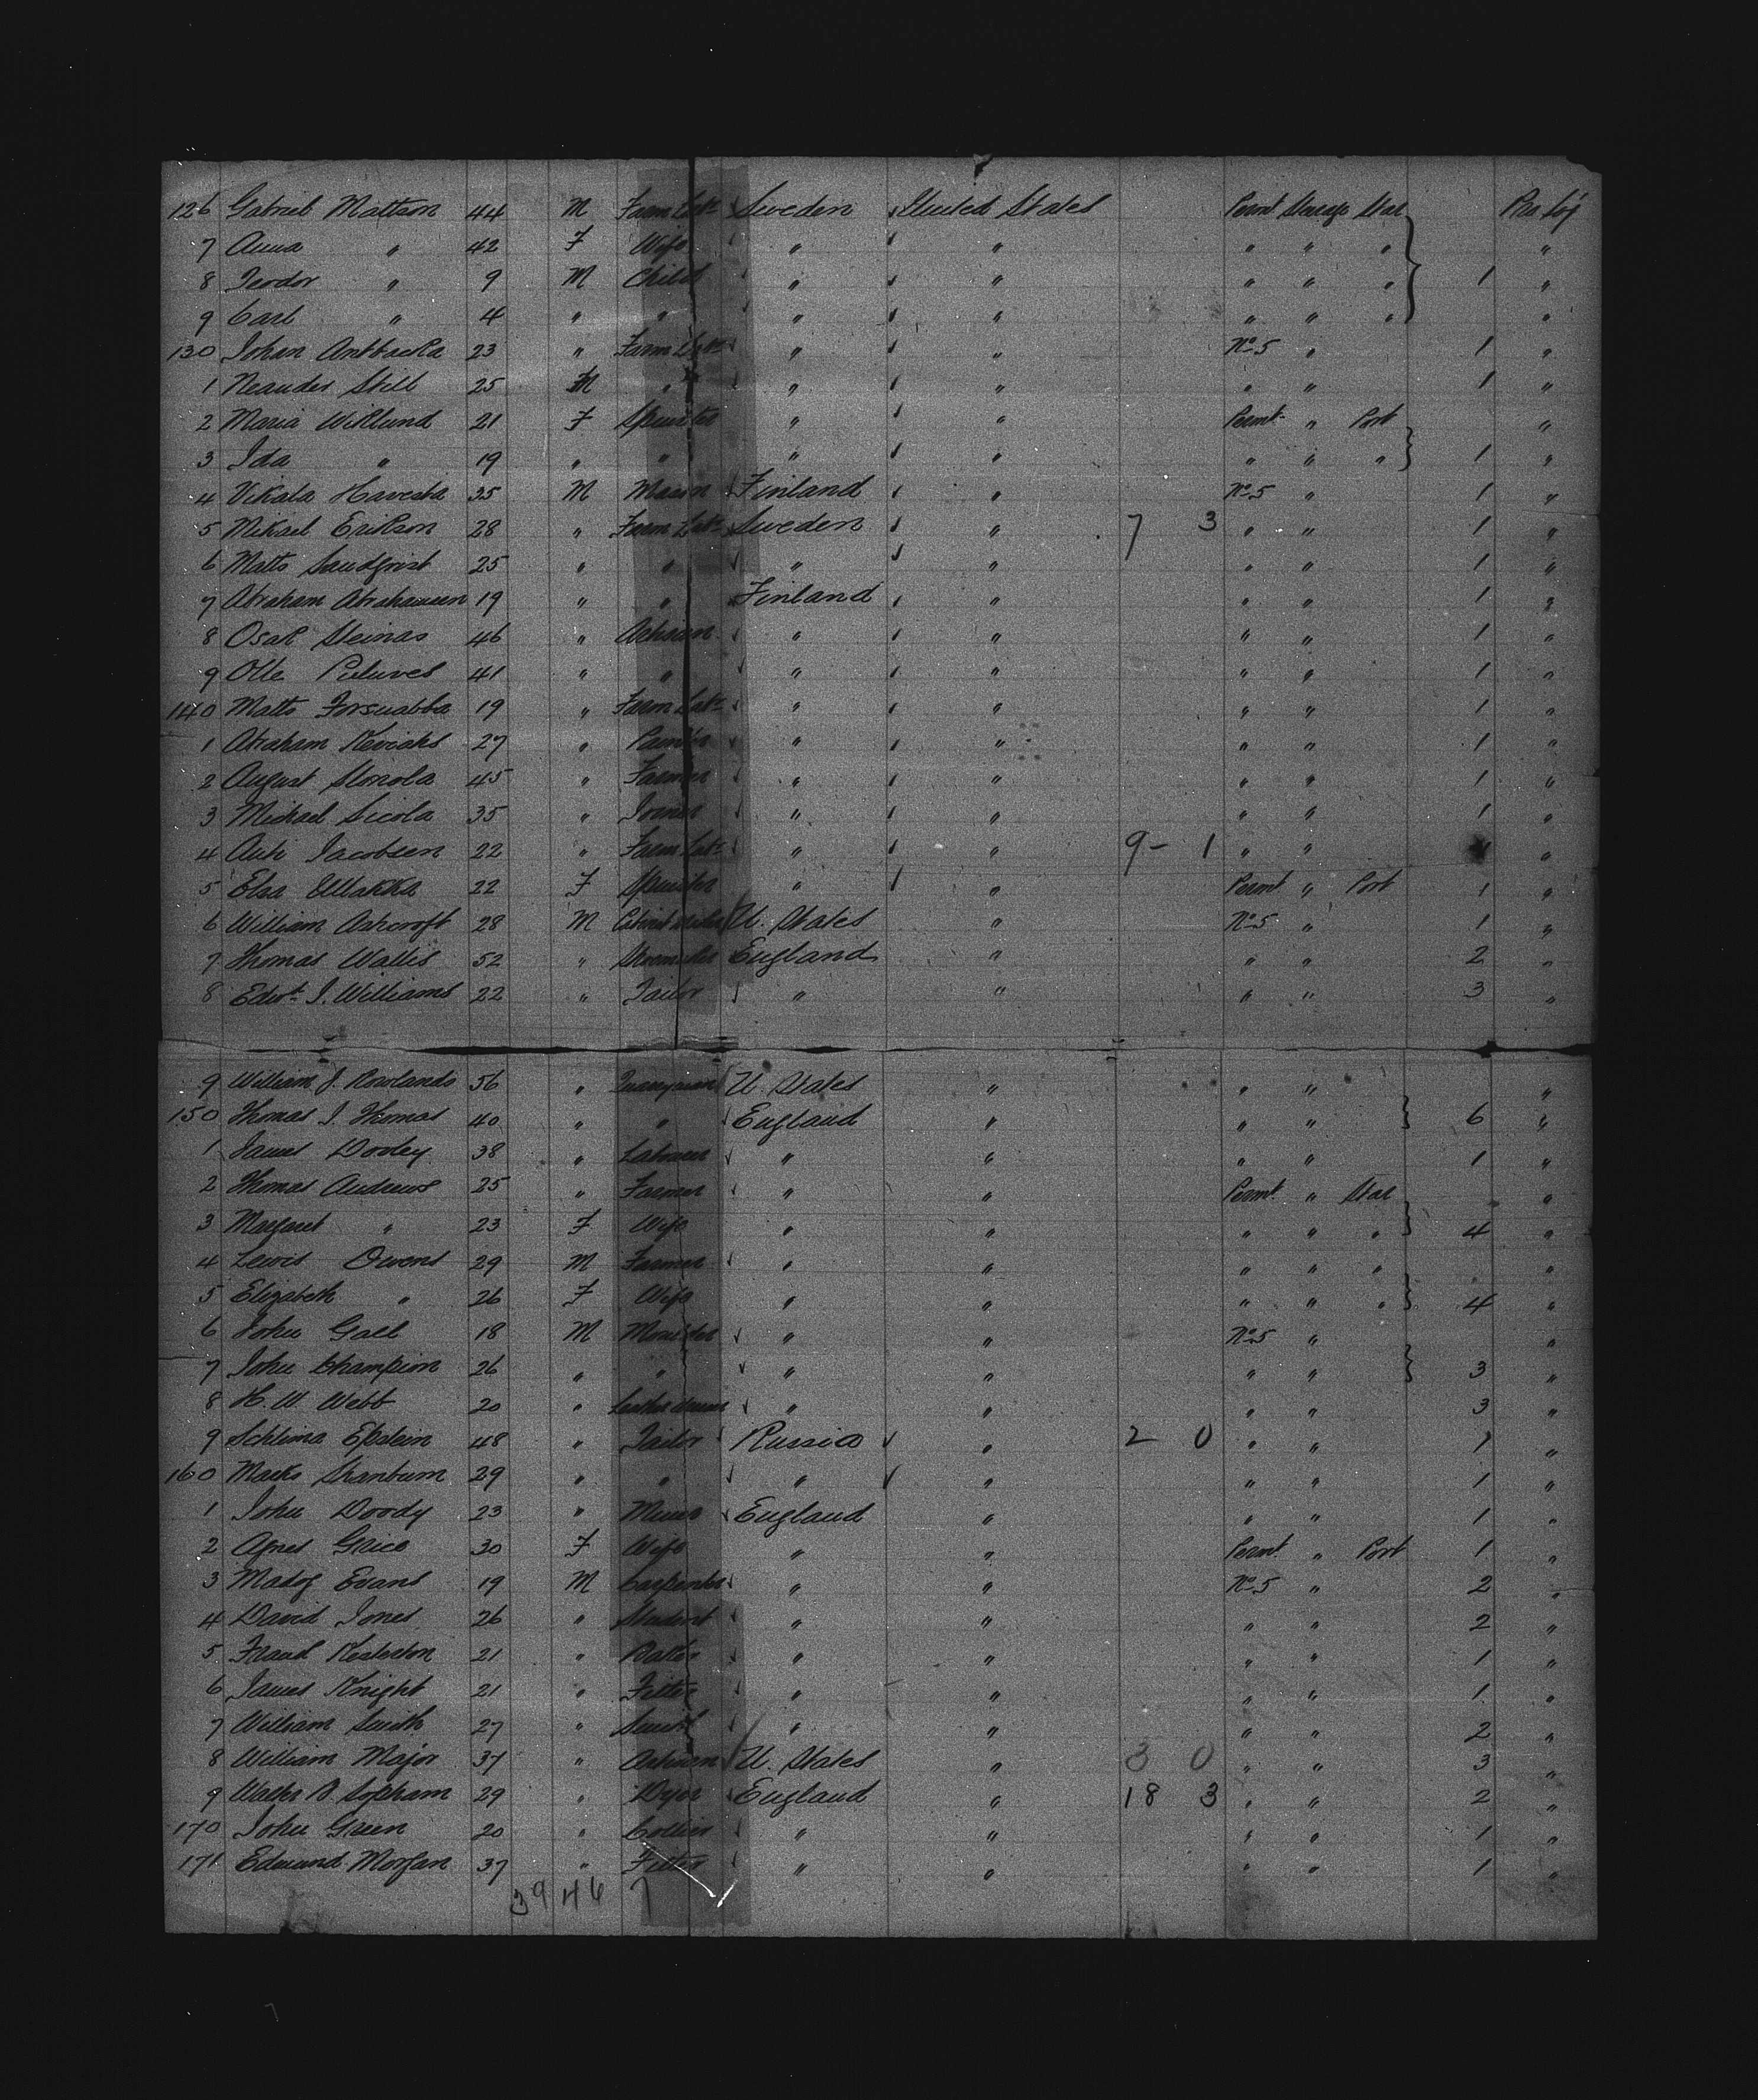 126 Gabriel Mattson 44 M Farm Labr Sweden United States Permt Steerage Star Pro Log
7 Anna " 42 F Wife " " " " " "
8 Teodor " 9 M Child " " " " " 1 "
9 Carl " 4 " " " " " " " "
130 Johan Antbacka 23 " Farm Labr " " No 5 " 1 "
1 Neander Still 25 M " " " " " 1 "
2 Maria Wiklund 21 F Spinster " " Permt " Port "
3 Ida " 19 " " " " " " " 1 "
4 Vikala Havesta 35 M Mason Finland " No 5 " 1 "
5 Mikael Erikson 28 " Farm Labr Sweden " 7 3 " " 1 "
6 Matts Sandqvist 25 " " " " " " 1 "
7 Abraham Abrahamsen 19 " " Finland " " " 1 "
8 Osak Steinas 46 " Artisan " " " " 1 "
9 Olle 41 " " " " " " 1 "
140 Matts 19 " Farm Labr " " " " 1 "
1 Abraham Keviaks 27 " " " " " 1 "
2 August Storola 45 " Farmer " " " " 1 "
3 Michael Sicola 35 " Joiner " " " " 1 "
4 Anti Jacobsen 22 " Farm Labr " " 9 - 1 " " 1 "
5 Elsa 22 F Spinster " " Permt " Port 1 "
6 William Ashcroft 28 M Cabinet Maker U. States " No 5 " 1 "
7 Thomas Wallis 52 " England " " " 2 "
8 Edwd J. Williams 22 " Tailor " " " " 3 "
9 William J. Rowlands 56 " Quarryman U. States " " " "
150 Thomas J. Thomas 40 " " England " " " 6 "
1 James Dooley 38 " Labourer " " " " 1 "
2 Thomas Andrews 25 " Farmer " " Permt " Star "
3 Margaret " 23 F Wife " " " " " 4 "
4 Lewis Owens 29 M Farmer " " " " " "
5 Elizabeth " 26 F Wife " " " " " 4 "
6 John Gall 18 M Moulder " " No 5 " "
7 John Champion 26 " " " " " " 3 "
8 H. W. Webb 20 " Leather " " " " 3 "
9 Schlima Epstein 48 " Tailor Russia " 2 0 " " 1 "
160 Marks Shanbum 29 " " " " " " 1 "
1 John Doody 23 " Miner England " " " 1 "
2 Agnes Grice 30 F Wife " " Permt " Port 1 "
3 Madog Evans 19 M Carpenter " " No 5 " 2 "
4 David Jones 26 " Student " " " " 2 "
5 Frank Kesterton 21 " " " " " 1 "
6 James Knight 21 " Fitter " " " " 1 "
7 William Smith 27 " Smith " " " " 2 "
8 William Major 37 " Artisan U. States " 3 0 " " 3 "
9 Walter D. Sopham 29 " Dyer England " 18 3 " " 2 "
170 John Green 20 " Collier " " " " 1 "
171 Edmund Morgan 37 " Fitter " " " " 1 "
39 46 7